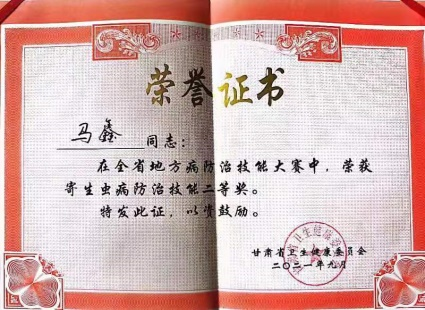 荣誉证书
马鑫 同志：
在全省地方病防治技能大赛中，荣获
寄生虫病防治技能二等奖。
特发此证，以资鼓励。
甘肃省卫生健康委员会
二〇二一年九月